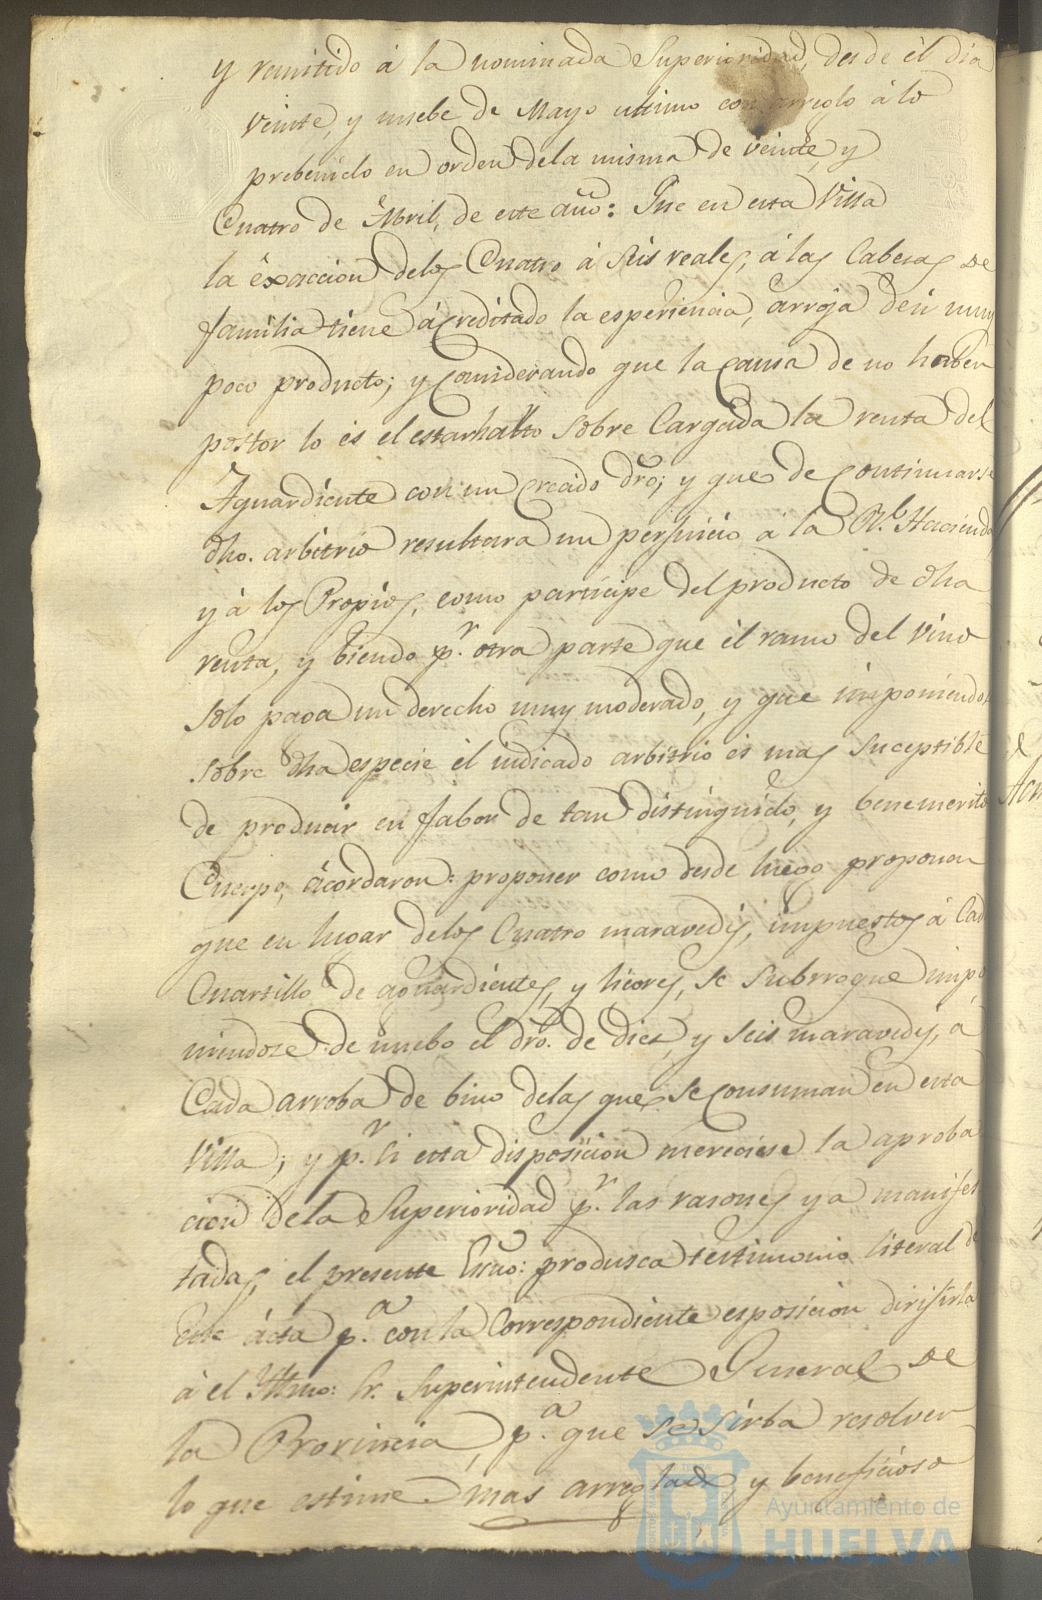 y remitido á la nominada Superioridad, desde él dia
veinte, y nuebe de Mayo ultimo con arreglo á lo
prebenido en orden dela misma de veinte, y
Cuatro de Abril, de este año: Que en esta Villa
la éxaccion delos Cuatro á seis reales, á las Cabesas de
familia tiene ácreditado la esperiencia, arroja de si muy
poco producto; y Considerando que la Causa de no haber
postor lo es el estar harto sobre Cargada la renta del
Aguardiente con un Crecido dro; y que de Continuarse
dho. arbitrio resultara un perjuicio a la Rl. Hacienda
y á los Propios, como participe del producto de dha
renta, y biendo pr. otra parte que él ramo del vino
solo paga un derecho muy moderado, y que imponiendo
sobre dha especie él indicado arbitrio es mas suceptible
de producir en fabor de tan distinguido, y benemerito
Cuerpo, ácordaron: proponer como desde luego proponen
que en lugar delos Cuatro maravedis, impuestos á Cad
Cuartillo de aguardientes, y licores, se subrrogue impo
niendoze de nuebo el dro. de dies, y seis maravedis, á
Cada arroba de bino delas que se Consuman en esta
Villa; y pr. si esta disposicion mereciese la aproba
cion dela Superioridad pr. las rasones ya manifes
tadas, el presente Esno: produsca testimonio literal de
este ácta pa. con la Correspondiente esposicion dirijirla
á el Yltmo: Sr. Superintendente General de
la Provincia, pa. que se sirba resolver
lo que estime mas arreglado y beneficioso
Ayuntamiento de
HUELVA